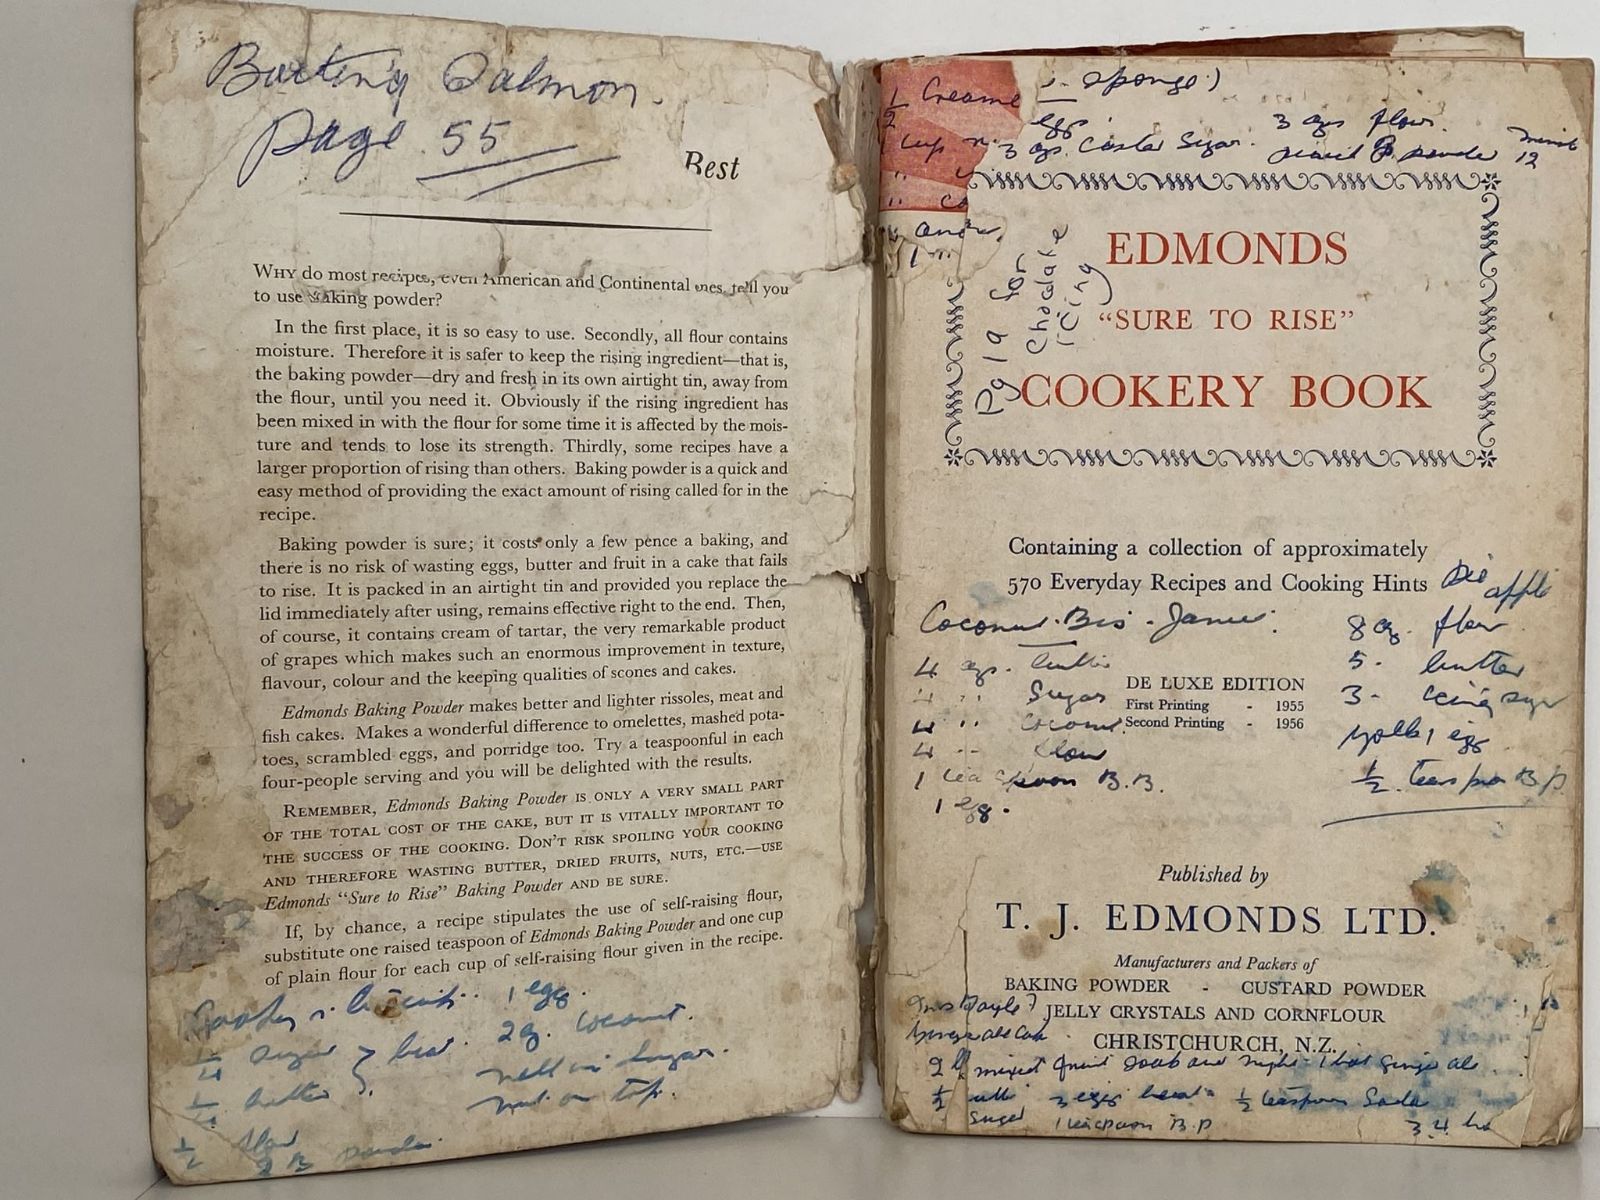 Salmon.
Page 55
Best
WHY do most recipes, even American and Continental ones, tell you
to use baking powder?
In the first place, it is so easy to use. Secondly, all flour contains
moisture. Therefore it is safer to keep the rising ingredient—that is,
the baking powder—dry and fresh in its own airtight tin, away from
the flour, until you need it. Obviously if the rising ingredient has
been mixed in with the flour for some time it is affected by the mois-
ture and tends to lose its strength. Thirdly, some recipes have a
larger proportion of rising than others. Baking powder is a quick and
easy method of providing the exact amount of rising called for in the
recipe.
Baking powder is sure; it costs only a few pence a baking, and
there is no risk of wasting eggs, butter and fruit in a cake that fails
to rise. It is packed in an airtight tin and provided you replace the
lid immediately after using, remains effective right to the end. Then,
of course, it contains cream of tartar, the very remarkable product
of grapes which makes such an enormous improvement in texture,
flavour, colour and the keeping qualities of scones and cakes.
Edmonds Baking Powder makes better and lighter rissoles, meat and
fish cakes. Makes a wonderful difference to omelettes, mashed pota-
toes, scrambled eggs, and porridge too. Try a teaspoonful in each
four-people serving and you will be delighted with the results.
REMEMBER, Edmonds Baking Powder IS ONLY A VERY SMALL PART
OF THE TOTAL COST OF THE CAKE, BUT IT IS VITALLY IMPORTANT TO
THE SUCCESS OF THE COOKING. DON'T RISK SPOILING YOUR COOKING
AND THEREFORE WASTING BUTTER, DRIED FRUITS, NUTS, ETC.—USE
Edmonds "Sure to Rise" Baking Powder AND BE SURE.
If, by chance, a recipe stipulates the use of self-raising flour,
substitute one raised teaspoon of Edmonds Baking Powder and one cup
of plain flour for each cup of self-raising flour given in the recipe.
biscuits. 1 egg.
1/4 sugar } beat. 2 oz. coconut.
1/4 butter roll in sugar.
nut on top.
1/2 flour
2 B powder.
1/2 Creame sponge)
egg. 3 ozs flour.
cup 3 ozs. Castor Sugar. B powder 12
Pg 19 for
Choclate
icing
EDMONDS
"SURE TO RISE"
COOKERY BOOK
Containing a collection of approximately
570 Everyday Recipes and Cooking Hints
Pie apple
Coconut Bis - Janie.
4 ozs. butter
4 " Sugar
4 " Coconut
4 " flour
1 tea spoon B.B.
1 egg.
8 oz. flour
5 - butter
3 - icing sugar
yolk 1 egg
1/2 teaspoon B.P.
DE LUXE EDITION
First Printing - 1955
Second Printing - 1956
Published by
T. J. EDMONDS LTD.
Manufacturers and Packers of
BAKING POWDER - CUSTARD POWDER
JELLY CRYSTALS AND CORNFLOUR
CHRISTCHURCH, N.Z.
Gingerale Cake
2 lb mixed fruit soak over night 1 bot ginger ale.
1/2 butter 3 eggs beat 1/2 teaspoon Soda
sugar 1 teaspoon B.P 3.4 hr